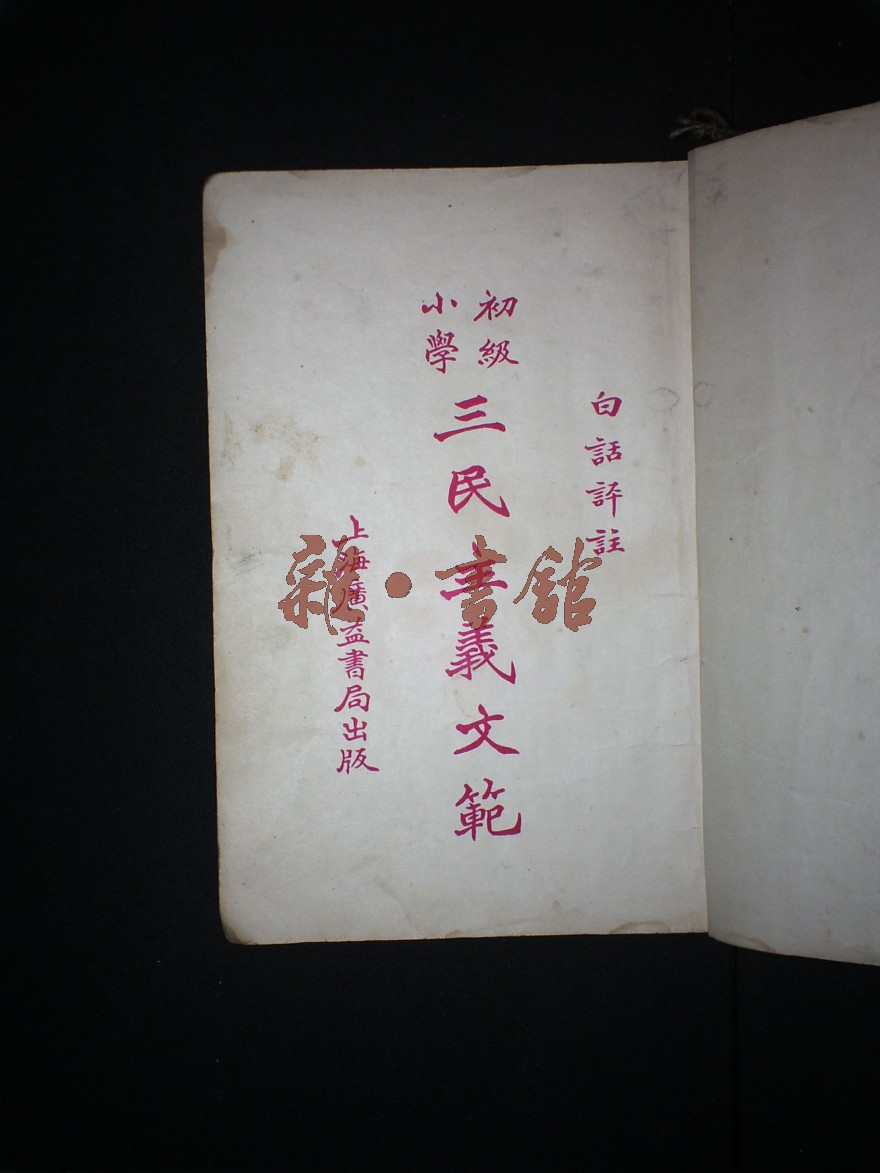 白話評註
初級
小學
三民主義文範
上海廣益書局出版
雜·書館